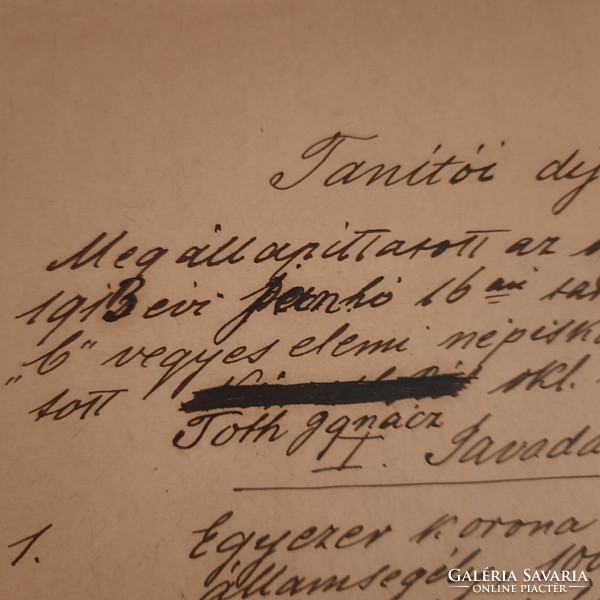 Tanítói díj
Megállapíttatott az
1913 évi jan. hó 16 án tar
"b" vegyes elemi népisko
tott okl.
Tóth Ignácz
I. Javada
1. Egyezer korona
államsegély 100
GALÉRIA SAVARIA
ONLINE PIACTÉR